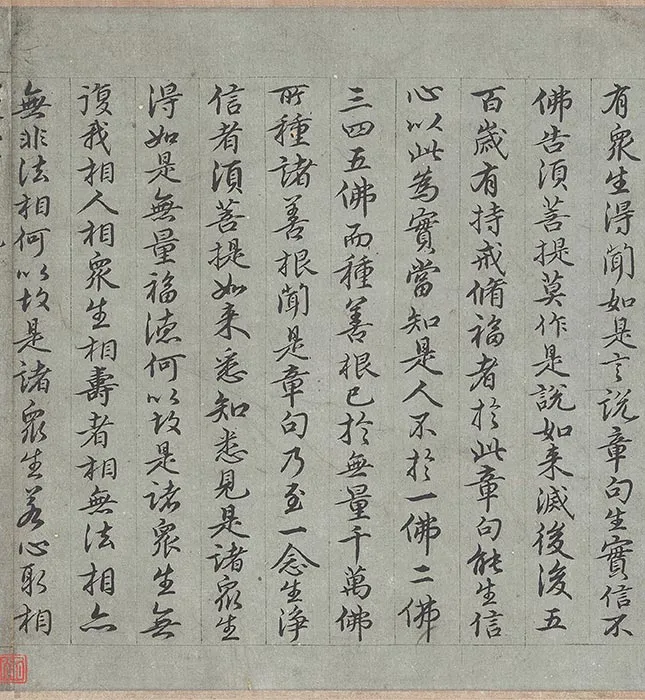 有衆生得聞如是言說章句生實信不
佛告須菩提莫作是說如来滅後後五
百歲有持戒脩福者於此章句能生信
心以此為實當知是人不於一佛二佛
三四五佛而種善根已於無量千萬佛
所種諸善根聞是章句乃至一念生淨
信者須菩提如来悉知悉見是諸衆生
得如是無量福德何以故是諸衆生無
復我相人相衆生相壽者相無法相亦
無非法相何以故是諸衆生若心取相